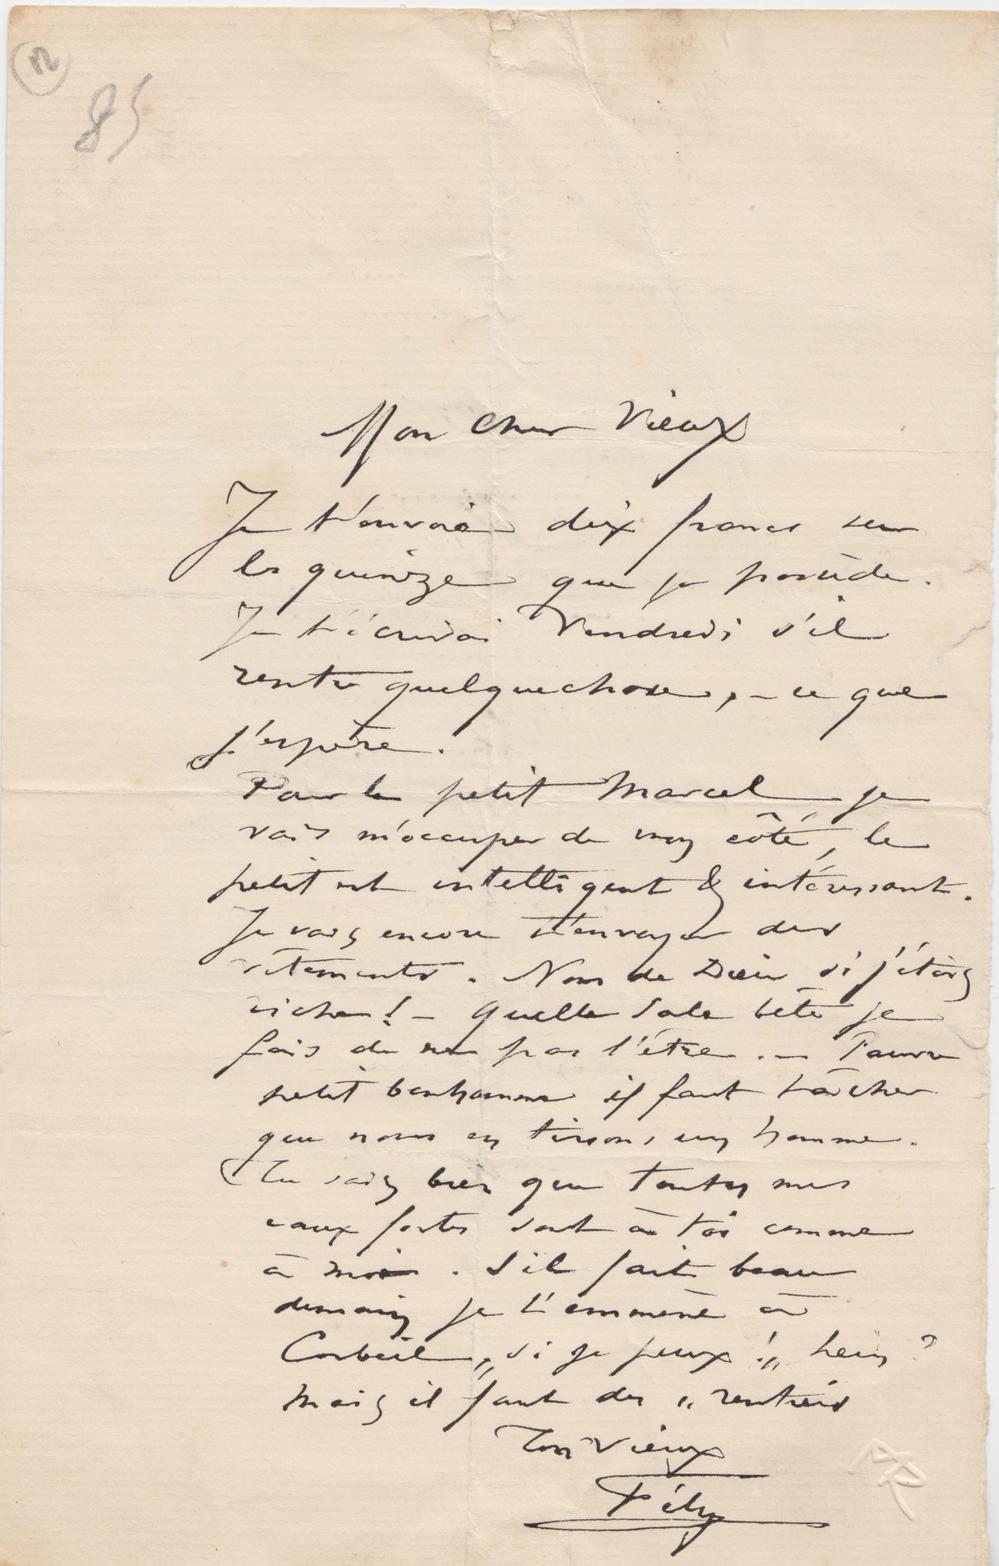 85
Mon cher Vieux
Je t'envoie dix francs sur
les quinze que je possède.
Je t'écrirai Vendredi s'il
rentre quelquechose, — ce que
j'espère.
Pour le petit Marcel je
vais m'occuper de mon côté, le
petit est intelligent & intéressant.
Je vais encore t'envoyer des
vêtements. Nom de Dieu si j'étais
riche! — quelle sale bête je
fais de ne pas l'être. — Pauvre
petit bonhomme il faut tâcher
que nous en tirions un homme.
Tu sais bien que toutes mes
eaux fortes sont à toi comme
à moi. S'il fait beau
demain je t'emmène à
Corbeil „si je peux!„ hein?
mais il faut des „rentrées
Ton vieux
Fély